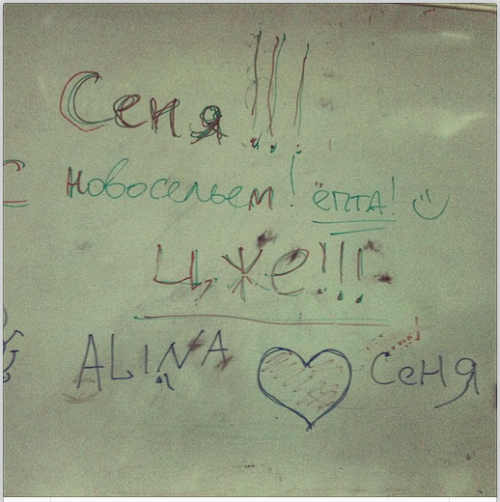 Сеня!!!
С новосельем! ёпта!
Цже!!!
ALINA Сеня